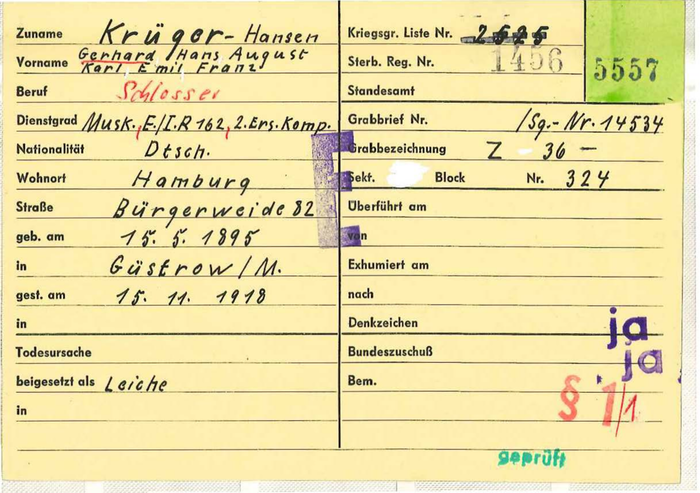 Zuname Krüger-Hansen
Vorname Gerhard, Hans August
Karl, Emil Franz
Beruf Schlosser
Dienstgrad Musk., E./I.R 162, 2. Ers. Komp.
Nationalität Dtsch.
Wohnort Hamburg
Straße Bürgerweide 82
geb. am 15. 5. 1895
in Güstrow/M.
gest. am 15. 11. 1918
in
Todesursache
beigesetzt als Leiche
in
E
Kriegsgr. Liste Nr. 2525
Sterb. Reg. Nr. 1456
5557
Standesamt
Grabbrief Nr. /Sg.-Nr. 14534
Grabbezeichnung Z 36 -
Sekt. Block Nr. 324
Überführt am
von
Exhumiert am
nach
Denkzeichen ja
Bundeszuschuß ja
Bem. § 1/1
geprüft